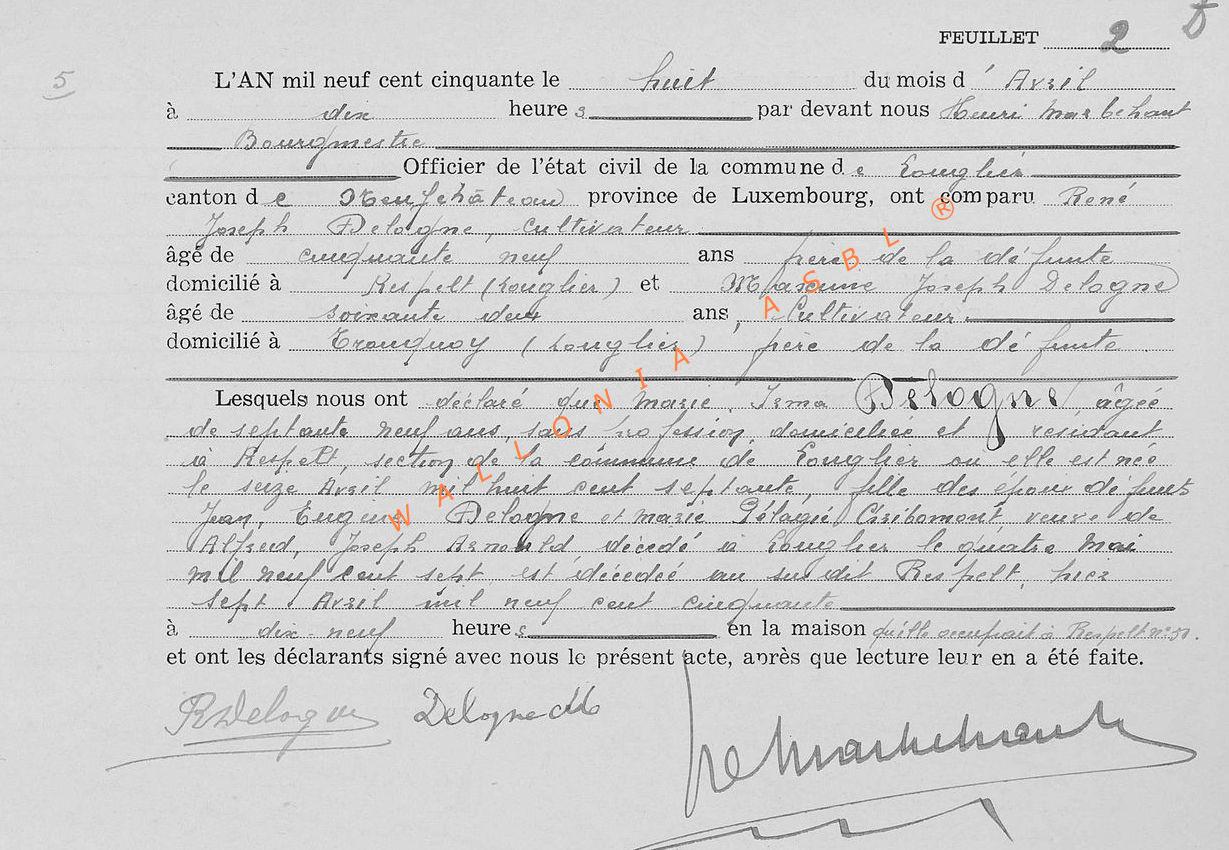 FEUILLET 2
5
L'AN mil neuf cent cinquante le huit du mois d' Avril
à dix heures par devant nous Henri Marbehant
Bourgmestre
Officier de l'état civil de la commune de Longlier
canton de Neufchâteau province de Luxembourg, ont comparu René
Joseph Delogne, cultivateur
âgé de cinquante neuf ans frère de la défunte
domicilié à Respelt (Longlier) et Maxime Joseph Delogne
âgé de soixante deux ans, Cultivateur.
domicilié à Tronquoy (Longlier) frère de la défunte
Lesquels nous ont déclaré que Marie, Irma Delogne, âgée
de septante neuf ans, sans profession, domiciliée et résidant
à Respelt, section de la commune de Longlier où elle est née
le seize Avril mil huit cent septante, fille des époux défunts
Jean, Eugène Delogne et Marie Pélagie Cribomont, veuve de
Alfred, Joseph Arnould, décédé à Longlier le quatre Mai
mil neuf cent sept, est décédée au susdit Respelt, hier
sept Avril mil neuf cent cinquante
à dix-neuf heures en la maison qu'elle occupait à Respelt n° 50.
et ont les déclarants signé avec nous le présent acte, après que lecture leur en a été faite.
RDelogne Delogne M
He Marbehant
WALLONIA ASBL ®